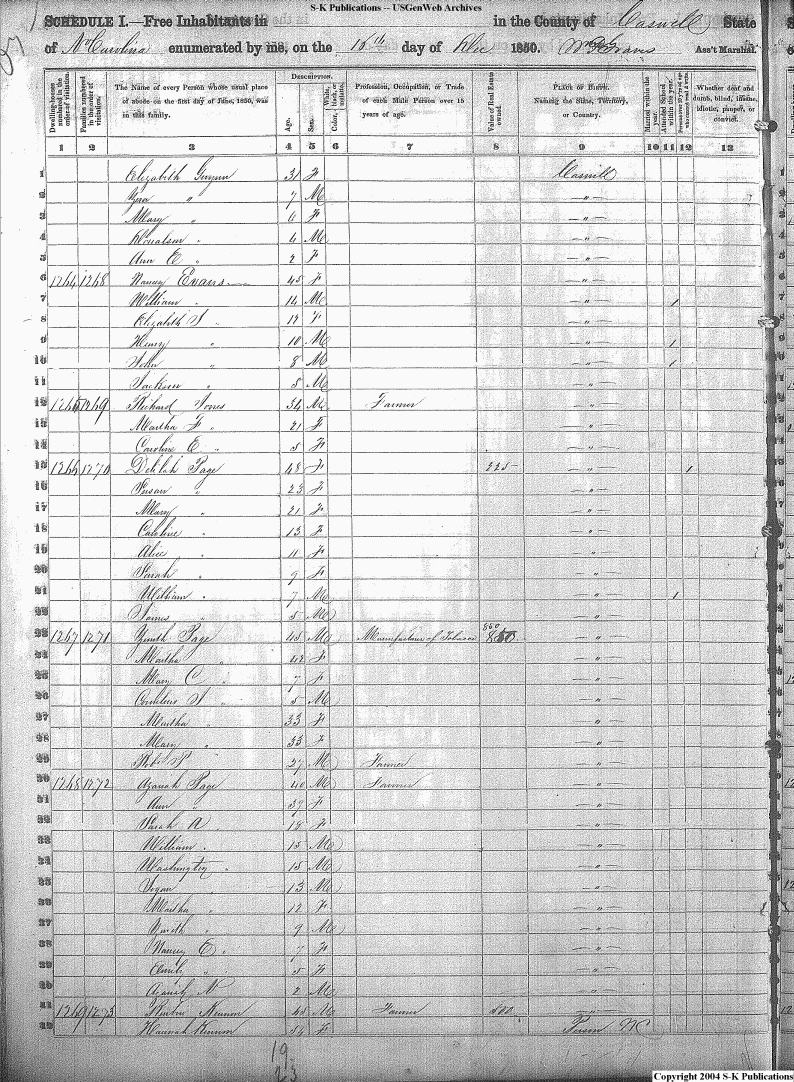 S-K Publications -- USGenWeb Archives
SCHEDULE I.—Free Inhabitants in in the County of Caswell State
of N. Carolina enumerated by me, on the 16th day of Dec 1850. Ass't Marshal.
Dwelling-houses numbered in the order of visitation. Families numbered in the order of visitation. The Name of every Person whose usual place of abode on the first day of June, 1850, was in this family. Description. Age. Sex. White, black, or mulatto. Color, Profession, Occupation, or Trade of each Male Person over 15 years of age. Value of Real Estate owned. Place of Birth. Naming the State, Territory, or Country. Married within the year. Attended School within the year. Whether deaf and dumb, blind, insane, idiotic, pauper, or convict.
1 2 3 4 5 6 7 8 9 10 11 12 13
1 Elizabeth 31 F Caswell
2 " 7 M "
3 Mary " 6 F "
4 " M "
5 Ann E " 2 F "
6 1264 1268 Nancy Evans 45 F "
7 William " 14 M " 1
8 Elizabeth S " F "
9 Henry " 10 M " 1
10 John " 8 M " 1
11 Jackson " 5 M "
12 1265 1269 Richard Jones 34 M Farmer "
13 Martha F " 21 F "
14 Caroline E " F "
15 1266 1270 Delilah Page 48 F 225 " 1
16 Susan " 23 F "
17 Mary " 21 F "
18 Caroline " 13 F "
19 Alice " 11 F "
20 Sarah " 9 F "
21 William " 7 M " 1
22 James " 5 M "
23 1267 1271 Page 45 M Manufacture of Tobacco 850 "
24 Martha " 42 F "
25 Mary C " 7 F "
26 Cornelius S " 5 M "
27 Martha " 33 F "
28 Mary " 33 F "
29 Robt " 27 M Farmer "
30 1268 1272 Azariah Page 40 M Farmer "
31 Ann " 37 F "
32 Sarah A " 18 F "
33 William " 15 M "
34 Washington " 15 M "
35 Logan " 13 M "
36 Martha " 12 F "
37 " 9 M "
38 Nancy E " 7 F "
39 " 5 F "
40 Azariah N " 2 M "
41 1269 1273 M Farmer 800 "
42 Hannah 54 F Person NC
19
23
Copyright 2004 S-K Publications